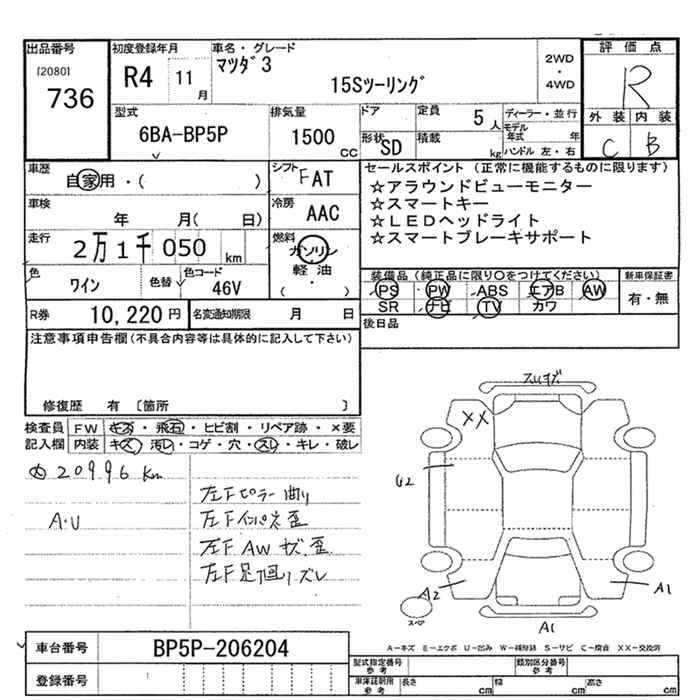 出品番号
[2080]
736
初度登録年月
R4 11 月
車名・グレード
マツダ3
15Sツーリング
2WD
・
4WD
評価点
R
外装 内装
C B
型式
6BA-BP5P
排気量
1500 CC
ドア
定員
5 人
形状
SD
積載
kg
ディーラー・並行
モデル年式 年
ハンドル 左・右
車歴
自家用・( )
シフト
FAT
車検
年 月( 日)
冷房
AAC
走行
2万1千050 km
燃料
ガソリン
軽油
・
( )
色
ワイン
色替
色コード
46V
R券
10,220 円
名変通知期限
月 日
セールスポイント (正常に機能するものに限ります)
☆アラウンドビューモニター
☆スマートキー
☆LEDヘッドライト
☆スマートブレーキサポート
装備品(純正品に限り○をつけてください)
新車保証書
PS PW ABS エアB AW
SR ナビ TV カワ
有・無
後日品
注意事項申告欄(不具合内容等は具体的に記入して下さい)
修復歴 有 〔箇所 〕
検査員記入欄
FW キズ・飛石・ヒビ割・リペア跡・×要
内装 キズ・汚レ・コゲ・穴・スレ・キレ・破レ
20996 Km
A・U
左Fピラー曲り
左Fインパネ歪
左F AW キズ、歪
左F足回リズレ
XX
U2
A2
A1
A1
スペア
A-キズ E-エクボ U-凹み W-補修跡 S-サビ C-腐食 XX-交換済
車台番号
BP5P-206204
登録番号
型式指定番号
参考
類別区分番号
参考
車庫証明用
参考
長さ cm
幅 cm
高さ cm